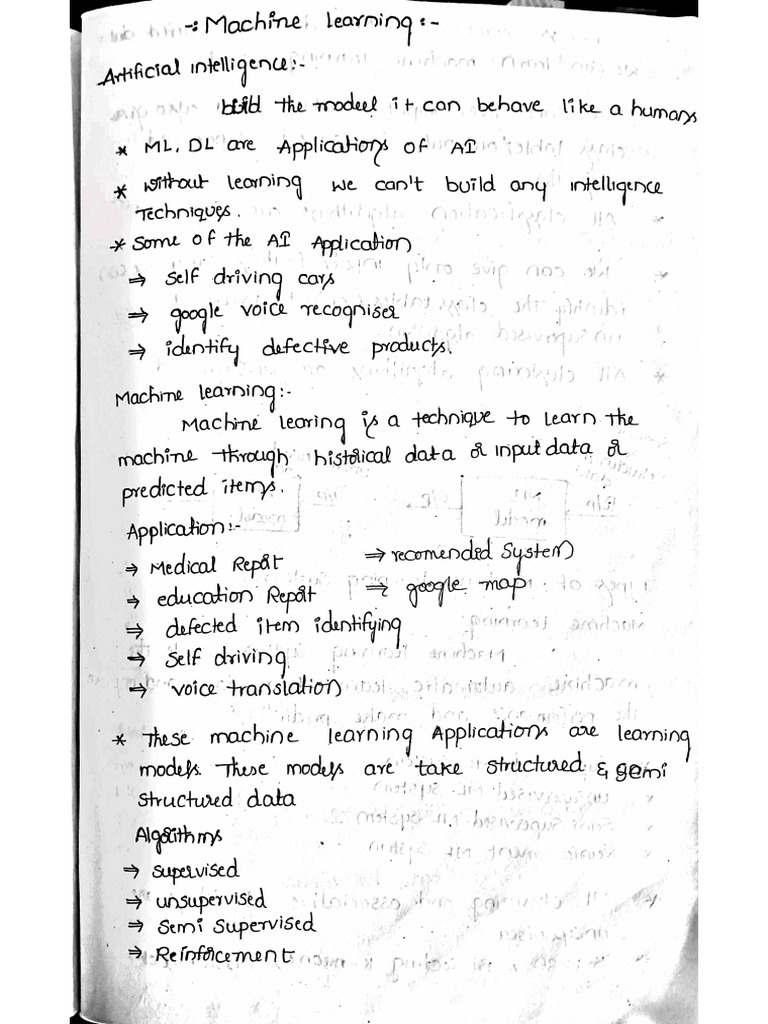 -: Machine learning:-
Artificial intelligence:-
build the modeel it can behave like a humans
* ML, DL are Applications of AI
* without learning we can't build any intelligence
Techniques.
* Some of the AI Application
⇒ self driving cars
⇒ google voice recogniser
⇒ identify defective products.
Machine learning:-
Machine learing is a technique to learn the
machine through historical data or input data or
predicted items.
Application:-
→ Medical Report ⇒ recomended System
→ education Report ⇒ google map
⇒ defected item identifying
→ Self driving
→ voice translation
* These machine learning Applications are learning
models. These models are take structured & semi
structured data
Algorithms
→ supervised
→ unsupervised
→ Semi Supervised
→ Reinforcement